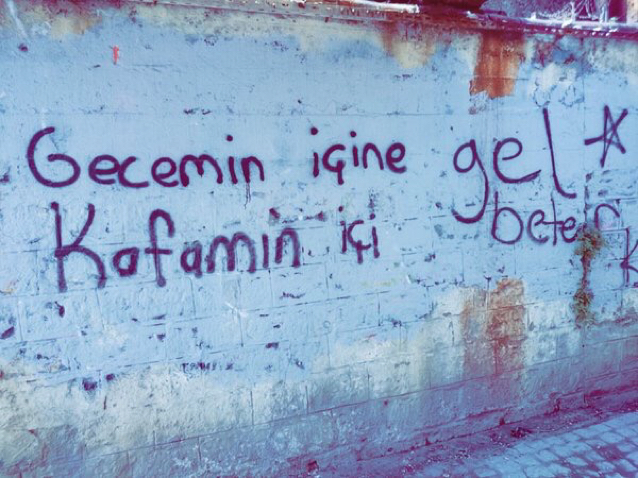 Gecemin içine gel
Kafamın içi beter
K